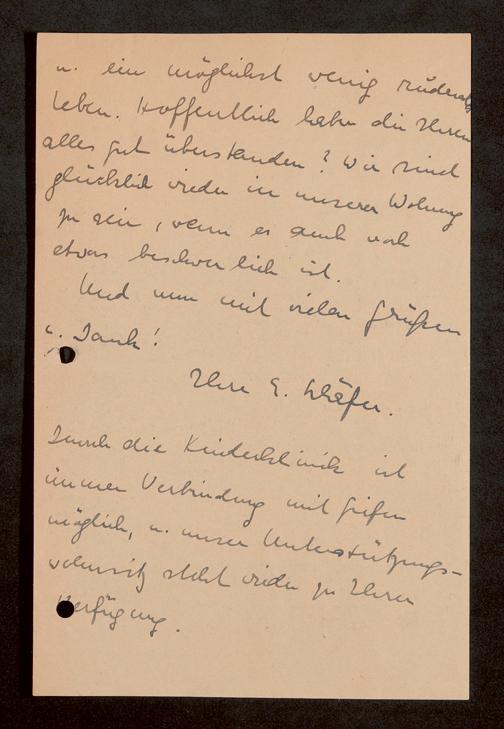 u. ein möglichst wenig
Leben. Hoffentlich haben die Ihren
alles gut überstanden? Wir sind
glücklich wieder in unserer Wohnung
zu sein, wenn es auch noch
etwas beschwerlich ist.
Und nun mit vielen Grüßen
u. Dank!
Ihre E. Schäfer.
Durch die Kinderklinik ist
immer Verbindung mit
möglich, u. unser Unterstützungs-
steht wieder zu Ihrer
Verfügung.